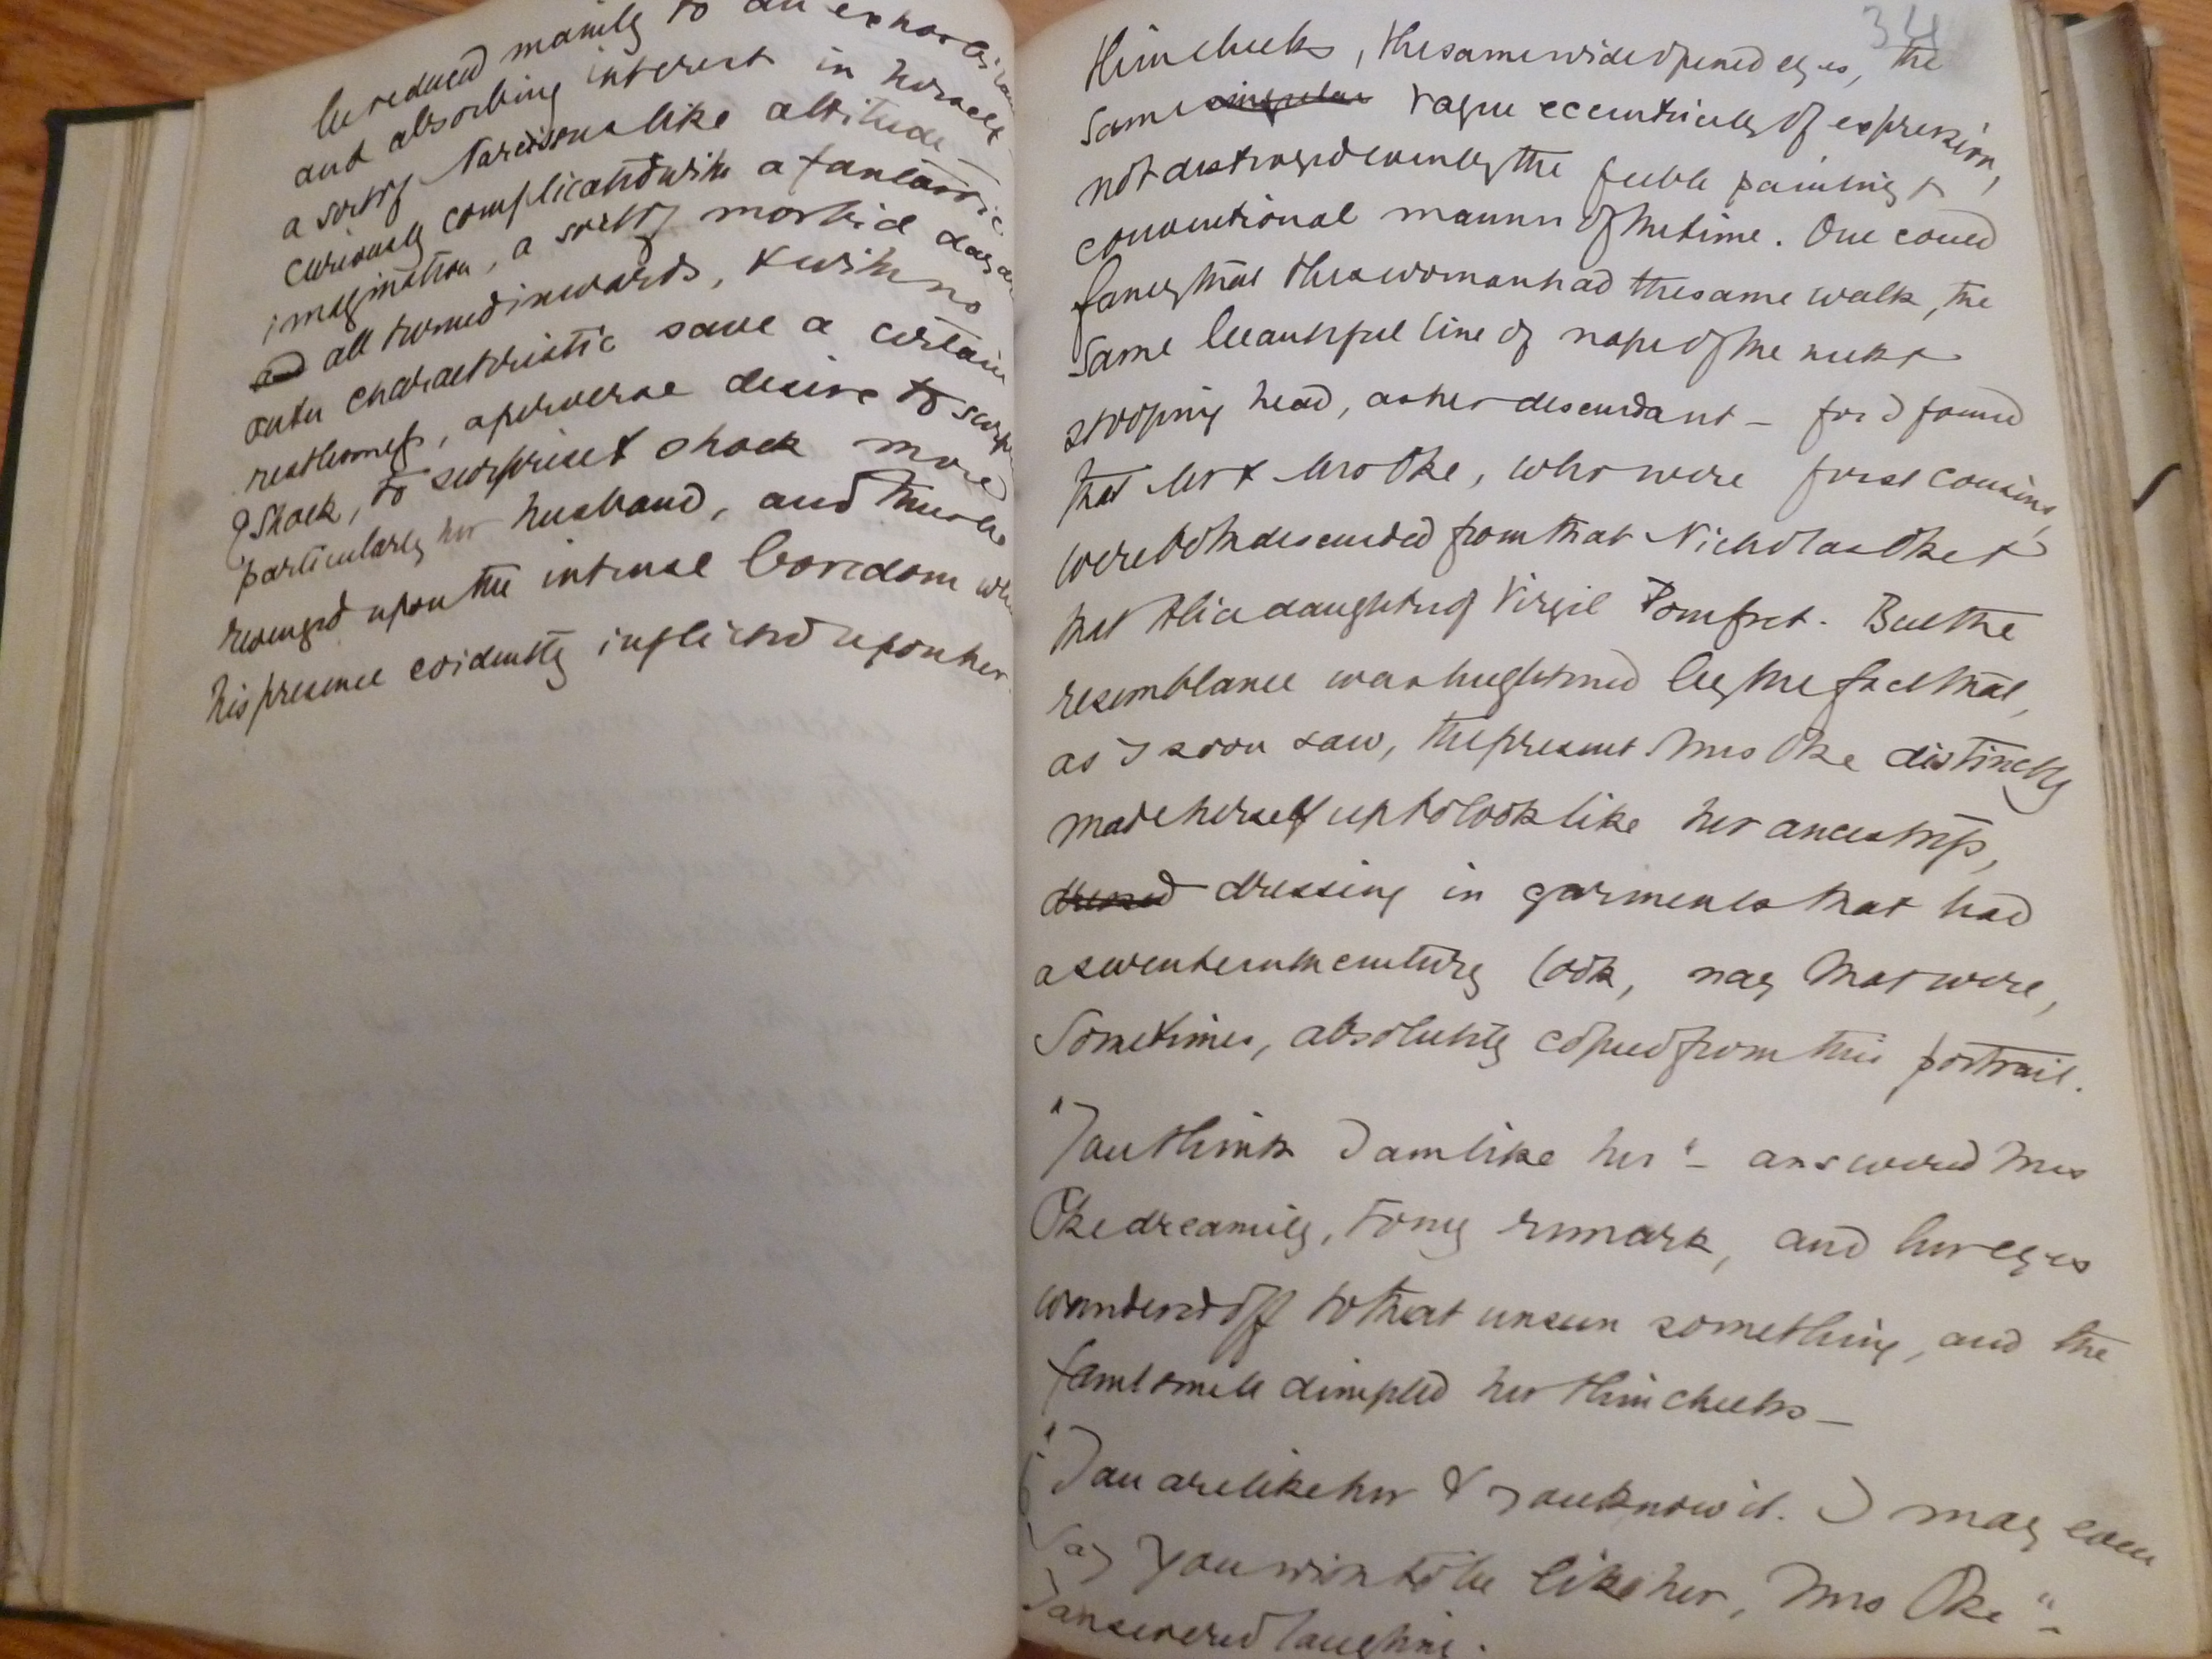 be reduced mainly to an exhorbitant
and absorbing interest in herself
a sort of Narcissus like attitude
curiously complicated with a fantastic
imagination, a sort of morbid day
and all turned inwards, & with no
outer characteristic save a certain
restlessness, a perverse desire to
shock, to surprise & shock more
particularly her husband, and thus be
revenged upon the intense boredom
his presence evidently inflicted upon her
34
thin cheeks, the same wide opened eyes, the
same singular vague eccentricity of expression,
not destroyed even by the feeble painting &
conventional manner of the time. One could
fancy that this woman had the same walk, the
same beautiful line of nape of the neck &
stooping head, as her descendant – for I found
that Mr & Mrs Oke, who were first cousins,
were both descended from that Nicholas Oke &
that Alice daughter of Virgil Pomfret. But the
resemblance was heightened by the fact that,
as I soon saw, the present Mrs Oke distinctly
made herself up to look like her ancestress,
dressed dressing in garments that had
a seventeenth century look, nay that were,
sometimes, absolutely copied from this portrait.
"You think I am like her" – answered Mrs
Oke dreamily, to my remark, and her eyes
wandered off to that unseen something, and the
faint smile dimpled her thin cheeks –
"You are like her & you know it. I may even
say you wish to be like her, Mrs Oke" –
I answered laughing.